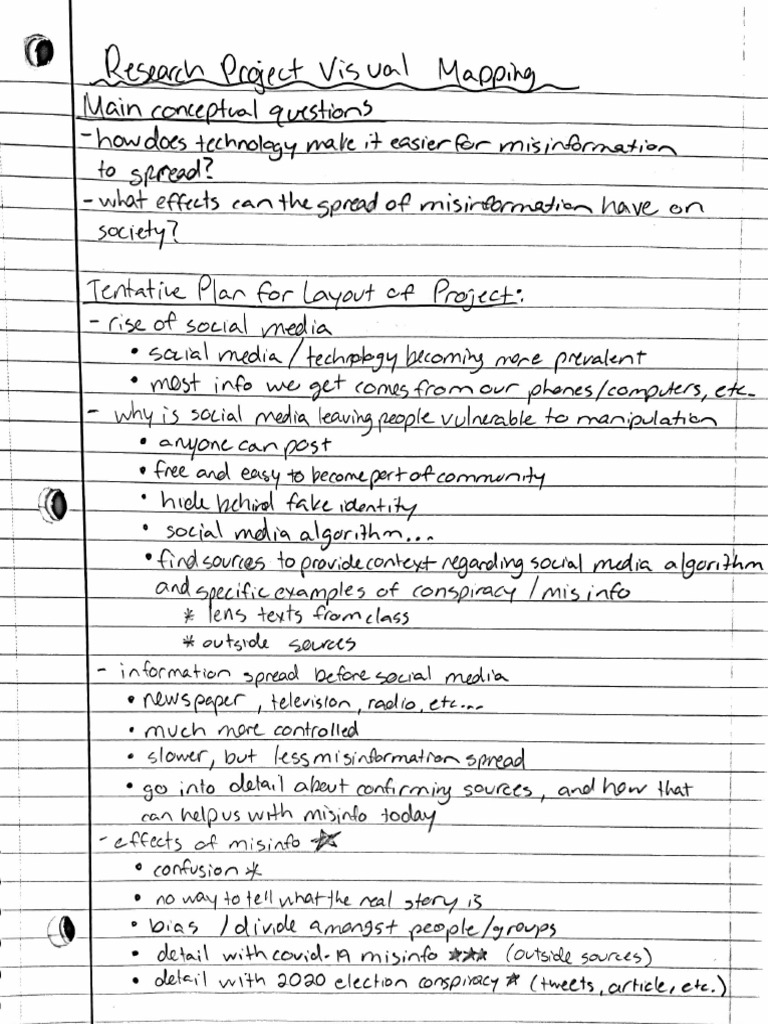 Research Project Visual Mapping
Main conceptual questions
- how does technology make it easier for misinformation
to spread?
- what effects can the spread of misinformation have on
society?
Tentative Plan for Layout of Project:
- rise of social media
• social media / technology becoming more prevalent
• most info we get comes from our phones/computers, etc.
- why is social media leaving people vulnerable to manipulation
• anyone can post
• free and easy to become part of community
• hide behind fake identity
• social media algorithm...
• find sources to provide context regarding social media algorithm
and specific examples of conspiracy / mis info
* lens texts from class
* outside sources
- information spread before social media
• newspaper, television, radio, etc...
• much more controlled
• slower, but less misinformation spread
• go into detail about confirming sources, and how that
can help us with misinfo today
- effects of misinfo ☆
• confusion *
• no way to tell what the real story is
• bias / divide amongst people/groups
• detail with covid-19 misinfo *** (outside sources)
• detail with 2020 election conspiracy * (tweets, article, etc.)